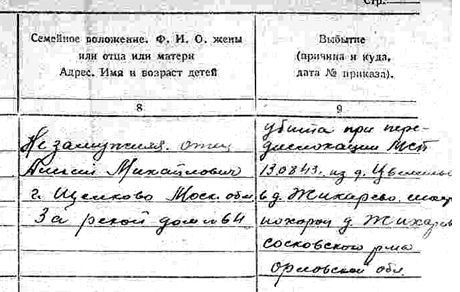 Стр.
Семейное положение. Ф. И. О. жены
или отца или матери
Адрес. Имя и возраст детей
8
Незамужняя. отец
Алексей Михайлович
г. Щелково Моск. обл.
За рекой дом №64
Выбытие
(причина и куда,
дата № приказа).
9
убита при пере-
дислокации МСП
13.08.43. из д.
в д. Жихарево.
похорон д. Жихарев
сосковского р-на
орловской обл.